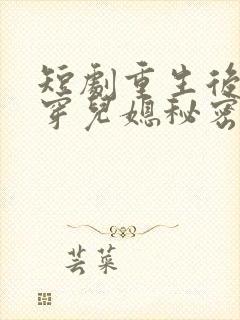 短劇重生後
穿兒媳秘密
芸菜